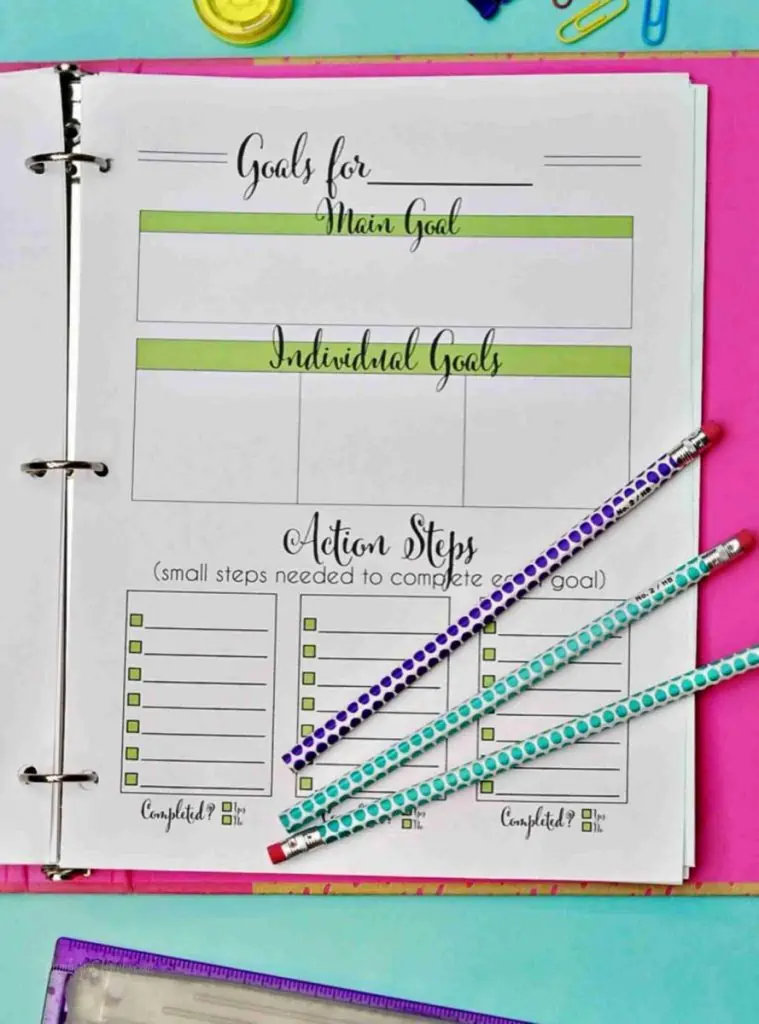 Goals for
Main Goal
Individual Goals
Action Steps
(small steps needed to complete goal)
Completed? Yes
No
No
Completed? Yes
No
No. 2 / HB
No. 2 / HB